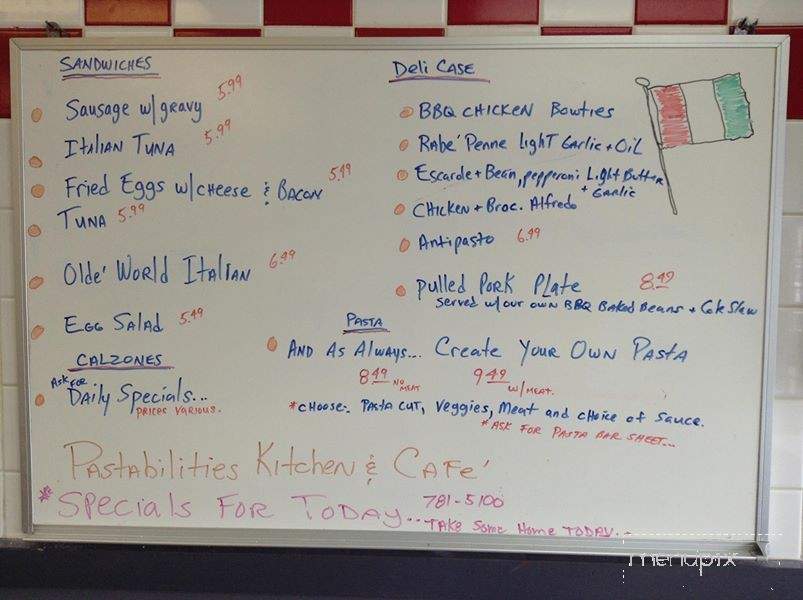 SANDWICHES
Sausage w/gravy 5.99
ITALIAN TUNA 5.99
Fried Eggs w/cheese & BACON 5.49
TUNA 5.99
Olde' World ITALIAN 6.99
EGG SALAD 5.49
CALZONES
ASK FOR
DAily Specials...
PRICES VARIOUS.
Deli CASE
BBQ CHICKEN Bowties
Rabe' Penne LIGHT Garlic + OIL
Escarole + Bean, pepperoni Light Butter
+ Garlic
CHICKEN + Broc. Alfredo
Antipasto 6.99
pulled PORK PLate 8.49
served w/our own BBQ BAKED BeANS + Cole Slaw
PASTA
AND AS ALWAYS... Create Your Own Pasta
8.49 NO MEAT 9.49 w/MEAT.
*CHOOSE: PASTA CUT, Veggies, Meat and choice of Sauce.
*ASK FOR PASTA BAR SHEET...
PASTABILITIES KITCHEN & CAFe'
*SPeCIALS FOR TODAY... 781-5100
TAKE Some Home TODAY..
menupix